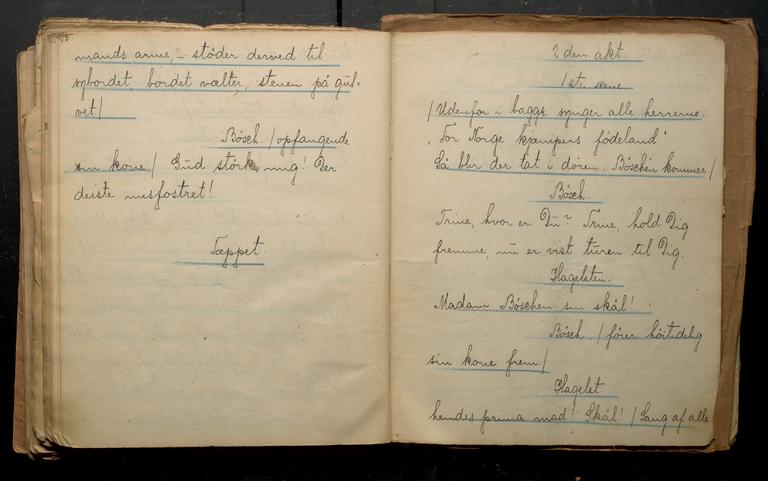 mands arme, - støder derved til
sybordet, bordet vælter, stenen på gul-
vet/
Bösch. /opfangende
sin kone/ Gud störk mig! Der
deiste misfostret!
Tæppet.
2den akt
1ste scene.
/Udenfor i baggr. synger alle herrerne.
"For Norge kjæmpers fødeland."
Så blir der tat i døren. Böschen kommer/
Bösch.
Trine, hvor er Du? Trine, hold Dig
fremme, nu er vist turen til Dig.
Hagelsten.
Madam Böschen sin skål!
Bösch. /fører høitidelig
sin kone frem/
Hagelst
hendes prima mad! Skål! /Sang af alle